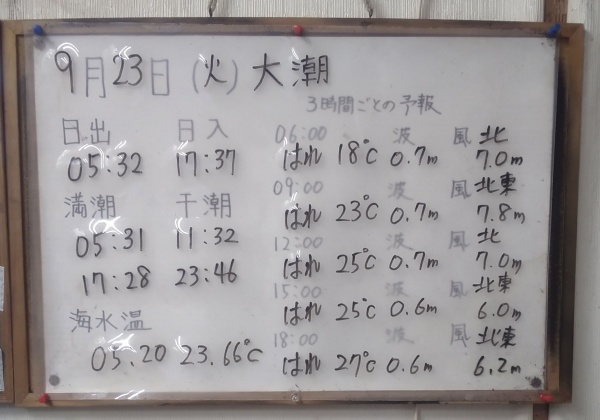 9月23日(火)大潮
3時間ごとの予報
日出 日入
05:32 17:37
満潮 干潮
05:31 11:32
17:28 23:46
海水温
05.20 23.66℃
06:00 波 風 北
はれ 18℃ 0.7m 7.0m
09:00 波 風 北東
はれ 23℃ 0.7m 7.8m
12:00 波 風 北
はれ 25℃ 0.7m 7.0m
15:00 波 風 北東
はれ 25℃ 0.6m 6.0m
18:00 波 風 北東
はれ 27℃ 0.6m 6.2m